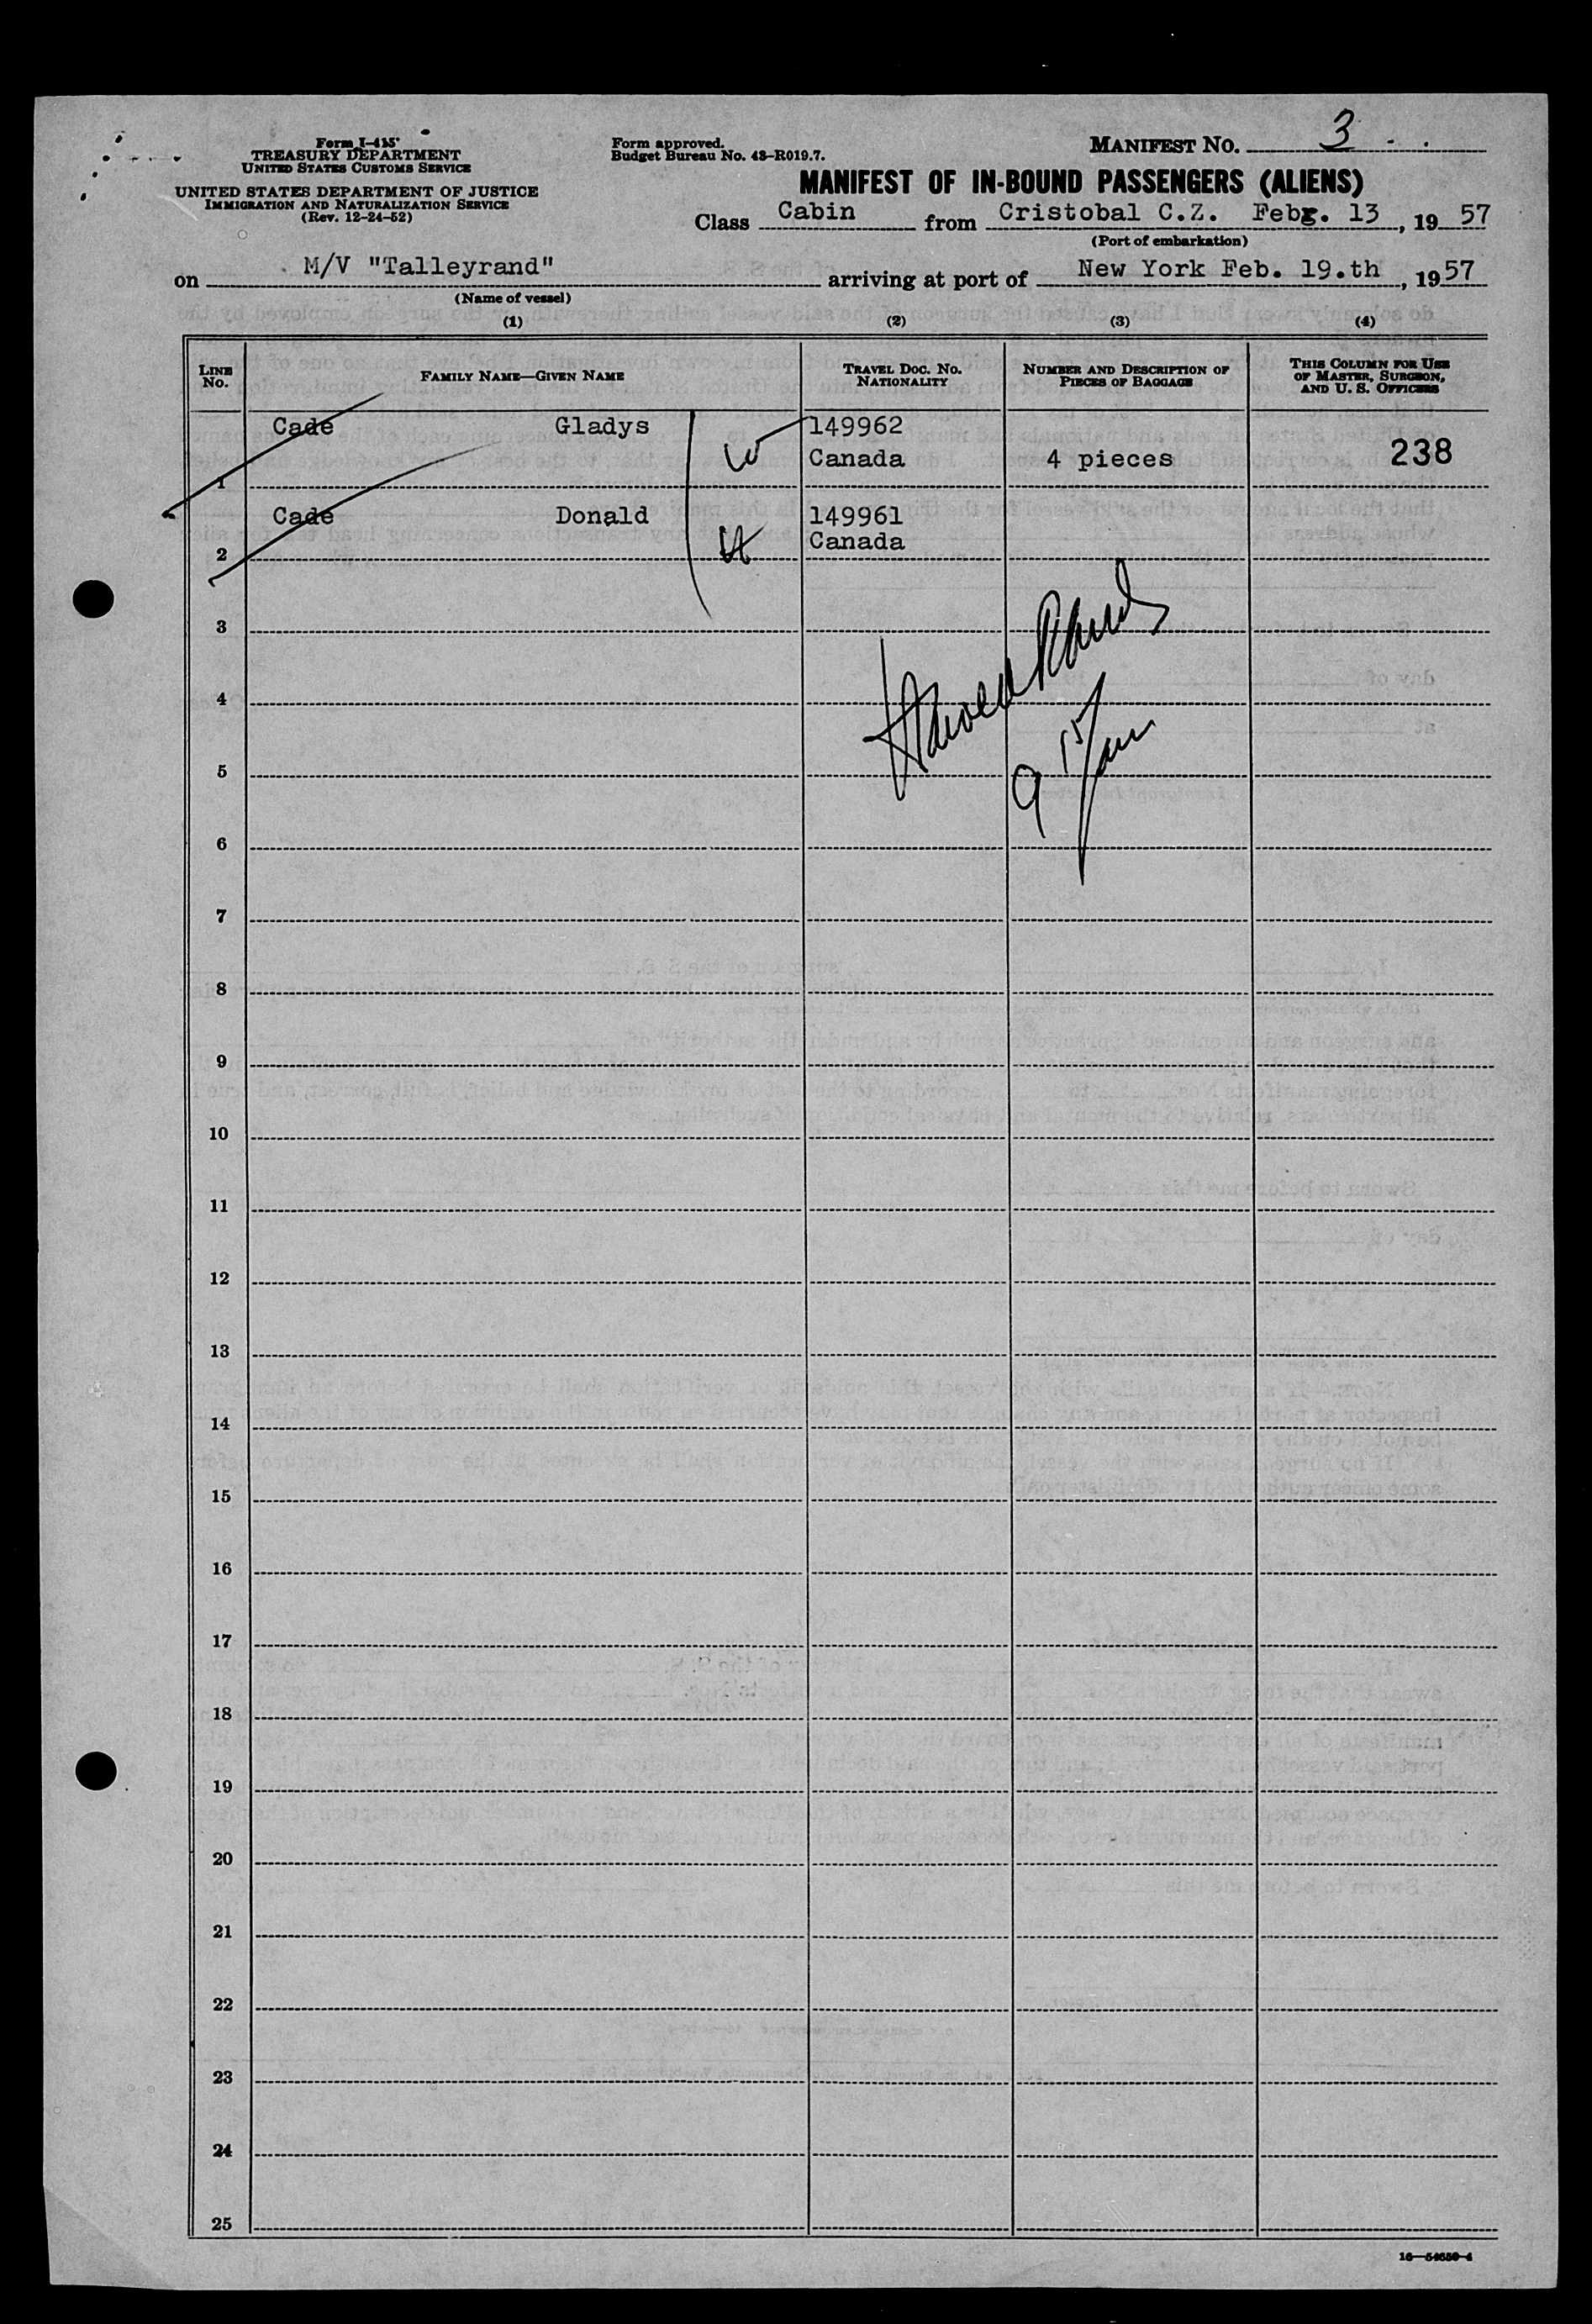 Form I-415
TREASURY DEPARTMENT
UNITED STATES CUSTOMS SERVICE
UNITED STATES DEPARTMENT OF JUSTICE
IMMIGRATION AND NATURALIZATION SERVICE
(Rev. 12-24-52)
Form approved.
Budget Bureau No. 43-R019.7.
MANIFEST NO. 3
MANIFEST OF IN-BOUND PASSENGERS (ALIENS)
Class Cabin from Cristobal C.Z. Febr. 13, 1957
(Port of embarkation)
on M/V "Talleyrand" arriving at port of New York Feb. 19.th, 1957
(Name of vessel)
(1) (2) (3) (4)
LINE NO. FAMILY NAME—GIVEN NAME TRAVEL DOC. NO. NATIONALITY NUMBER AND DESCRIPTION OF PIECES OF BAGGAGE THIS COLUMN FOR USE OF MASTER, SURGEON, AND U. S. OFFICERS
Cade Gladys 149962
1 W Canada 4 pieces 238
Cade Donald 149961
2 H Canada
3
4
5
9 15/am
6
7
8
9
10
11
12
13
14
15
16
17
18
19
20
21
22
23
24
25
16—54650-4